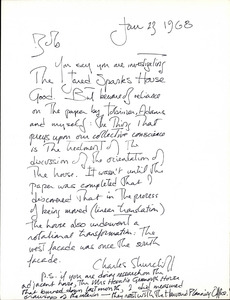 Jan 23 1968
Bob
You say you are investigating
The Jared Sparks House
Good. But beware of reliance
on The paper by Robinson, Adams
and myself. The Thing That
preys upon our collective conscience
is The treatment of The
discussion of the orientation of
The house. It wasn't until the
paper was completed that I
discovered that in the process
of being moved (linear translation)
The house also underwent a
rotational transformation. The
west facade was once the south
facade.
Charles
P.S. if you are doing research on the
adjacent house, The
that burned down last I did measured
drawings of the interior. They rest with the Harvard Planning Office.